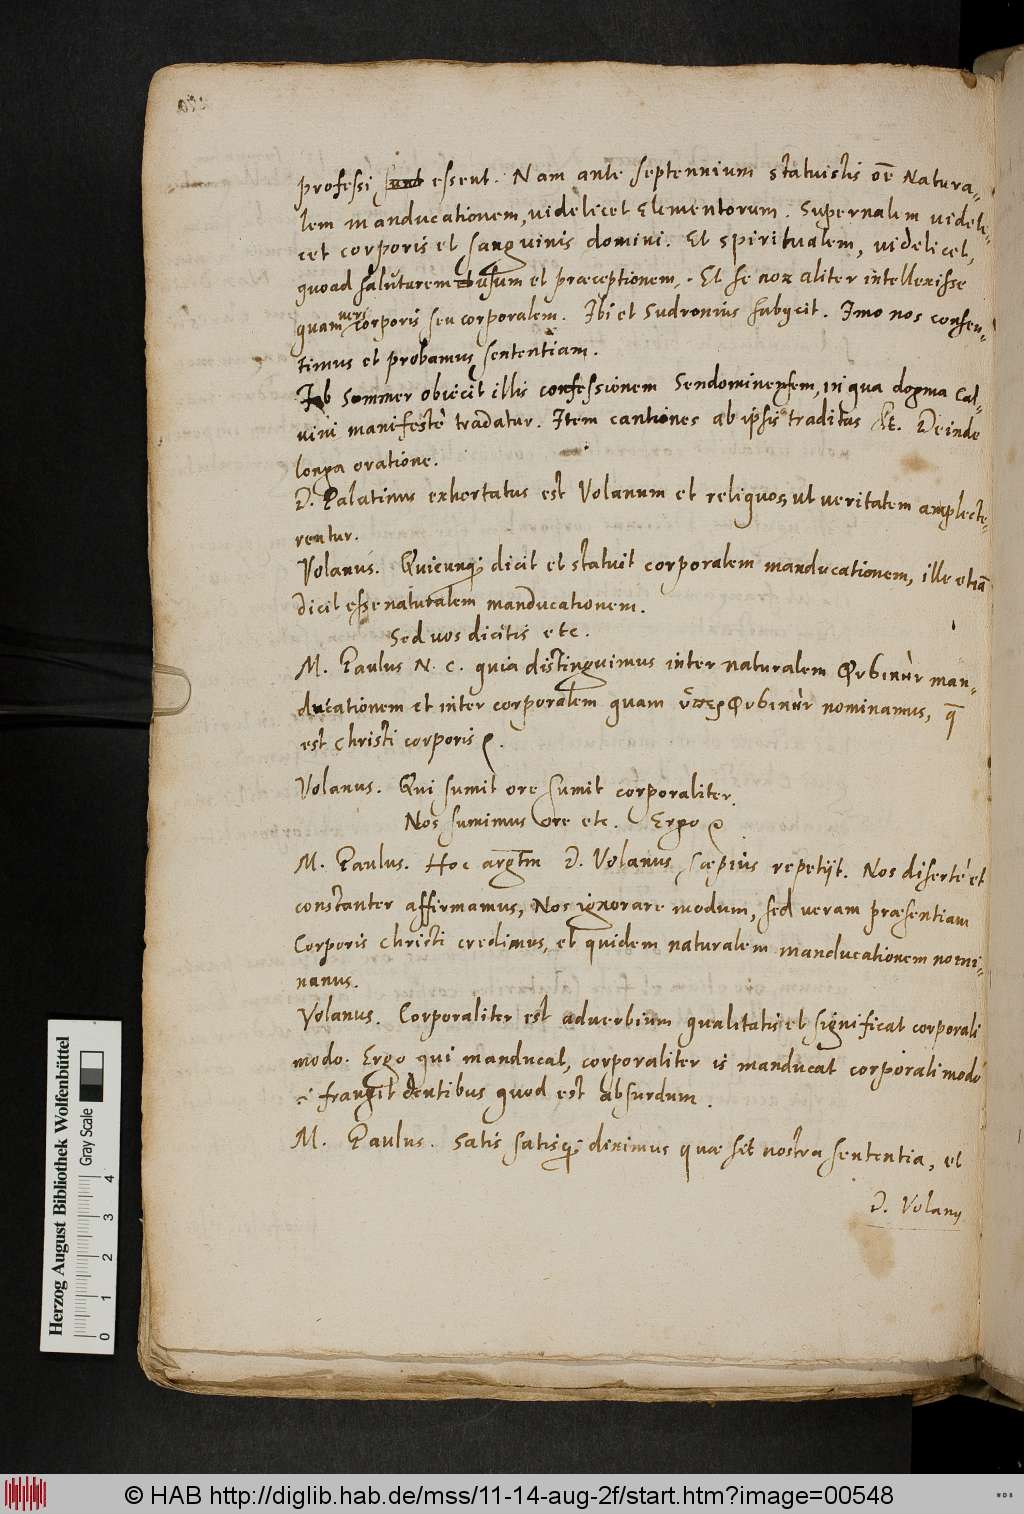 professi sunt essent. Nam ante septennium statuistis oē Natura-
lem manducationem, videlicet Elementorum. Supernalem videli-
cet corporis et sanguinis domini. Et spiritualem, videlicet,
quoad salutarem usum et præceptionem. Et se non aliter intellexisse
quam corporis seu corporalem. Ibi et Sudronius subycit. Imo nos consen-
timus et probamus sententiam.
Iob Sommer obiecit illis confessionem Sendominensem, in qua dogma Cal-
vini manifestè tradatur. Item cantiones ab ipsis traditas &c. Deinde
longa oratione.
D. Palatinus exhortatus est Volanum et reliquos, ut veritatem amplecte-
rentur.
Volanus. Quicunq; dicit et statuit corporalem manducationem, ille etiā
dicit esse naturalem manducationem.
Sed vos dicitis etc.
M. Paulus N. C. quia distinguimus inter naturalem φυσικὴν man-
ducationem et inter corporalem quam ὑπερφυσικὴν nominamus, q̄
est Christi corporis
Volanus. Qui sumit ore sumit corporaliter.
Nos sumimus ore etc. Ergo
M. Paulus. Hoc argtm D. Volanus sæpius repetijt. Nos disertè et
constanter affirmamus, Nos ignorare modum, sed veram præsentiam
Corporis Christi credimus, et quidem naturalem manducationem nomi-
namus.
Volanus. Corporaliter est adverbium qualitatis et significat corporali
modo. Ergo qui manducat, corporaliter is manducat corporali modo
.i. frangit dentibus quod est absurdum.
M. Paulus. Satis satisq; diximus quæ sit nostra sententia, et
D. Volanij
Herzog August Bibliothek Wolfenbüttel
Gray Scale
0 1 2 3 4
© HAB http://diglib.hab.de/mss/11-14-aug-2f/start.htm?image=00548